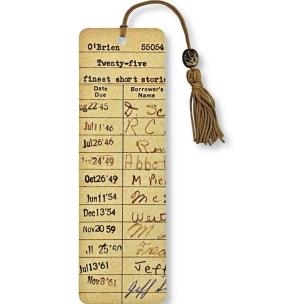 O'Brien 55054
Twenty-five
finest short storie
Date Due Borrower's Name
ug 22'45
Jul 11'46 R C
Jul 26'46
24'49 Abbot
Oct 26'49 M
Jun 11'54
Dec 13'54 West
Nov 20 59 M
25'60
Jul 13'61 Jeff
Nov 8'61 Jeff S